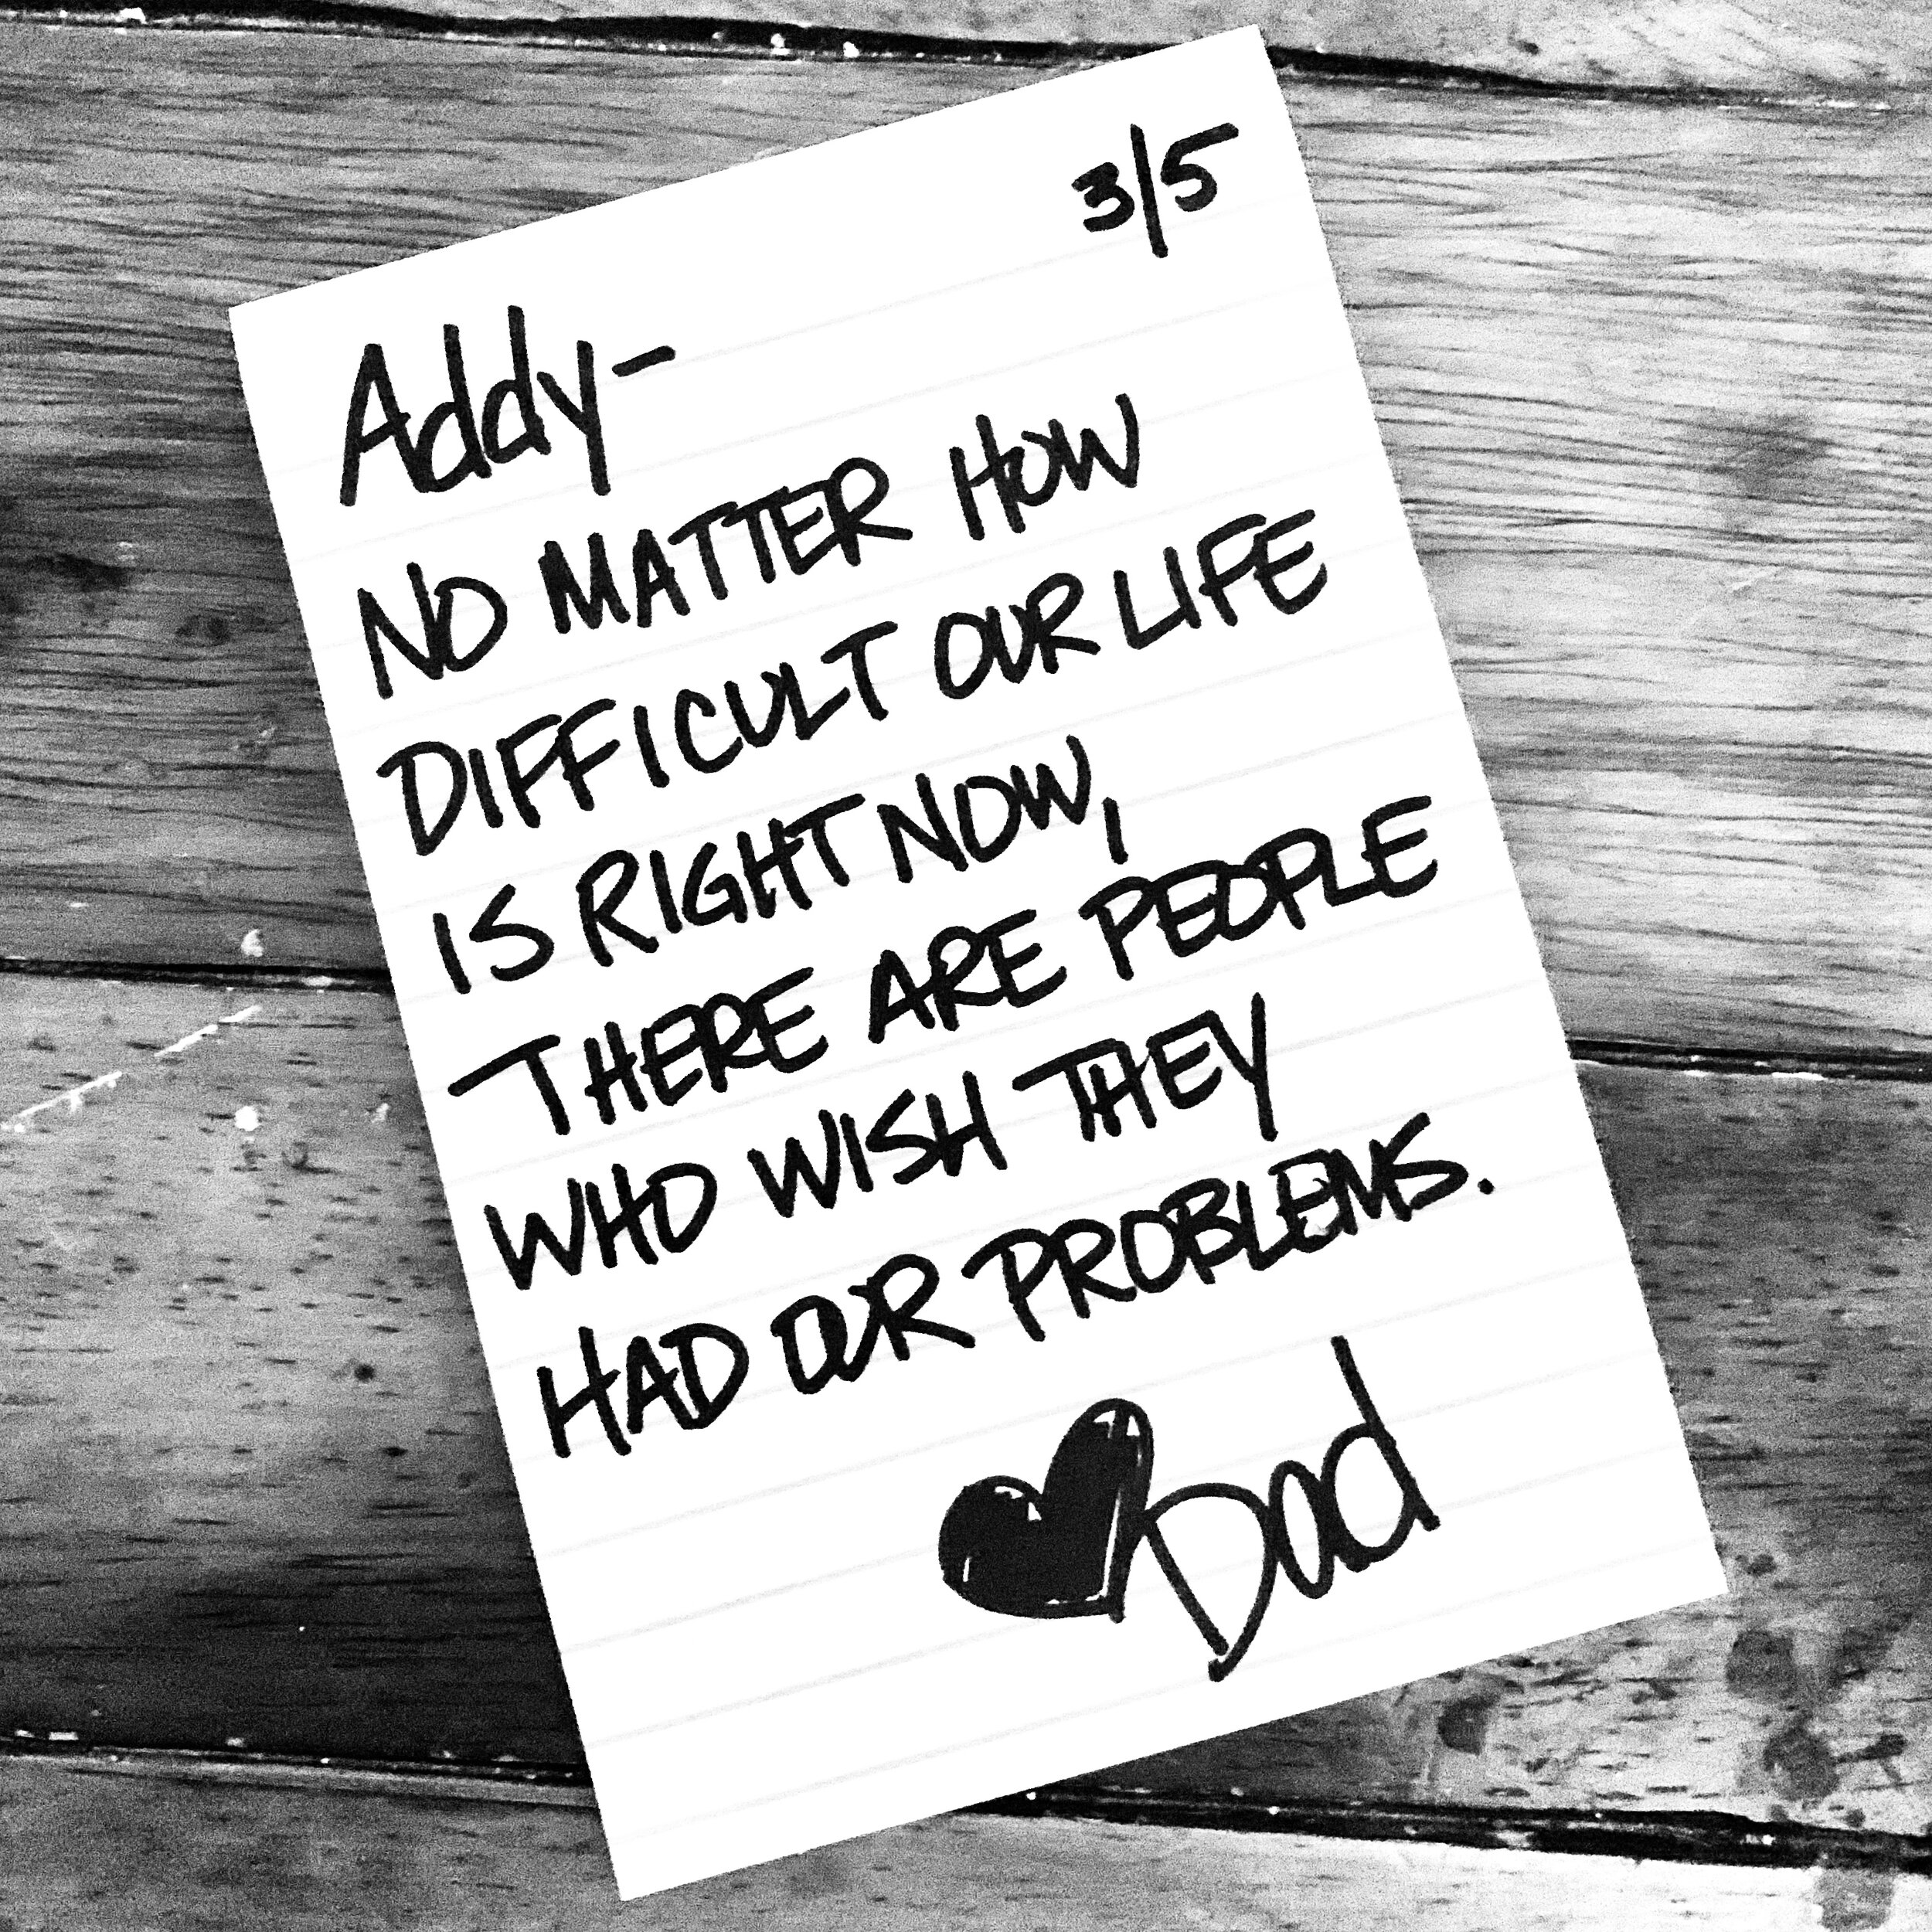 3/5
Addy-
NO MATTER HOW
DIFFICULT OUR LIFE
IS RIGHT NOW,
THERE ARE PEOPLE
WHO WISH THEY
HAD OUR PROBLEMS.
Dad